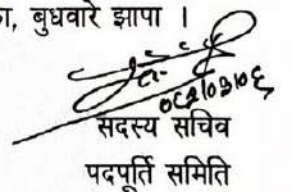 , बुधवारे झापा ।
सदस्य सचिव
पदपूर्ति समिति